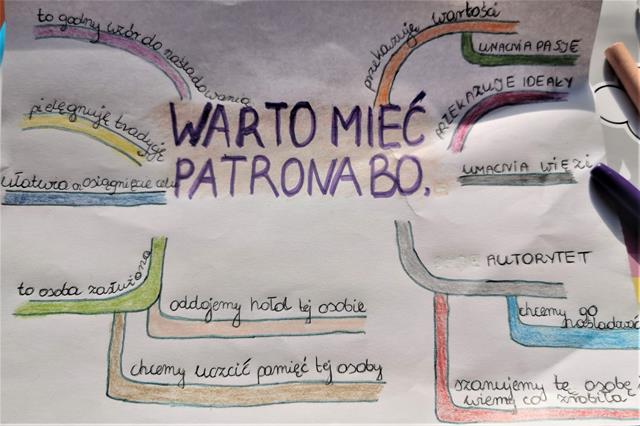 to godny wzór do naśladowania
pielęgnuję tradycję
ułatwia osiągnięcie celu
WARTO MIEĆ
PATRONA BO,
przekazuję wartości
UMACNIA PASJE
PRZEKAZUJE IDEAŁY
UMACNIA WIĘZI
to osoba zasłużona
oddajemy hołd tej osobie
chcemy uczcić pamięć tej osoby
AUTORYTET
chcemy go
naśladować
szanujemy tę osobę i
wiemy co zrobiła